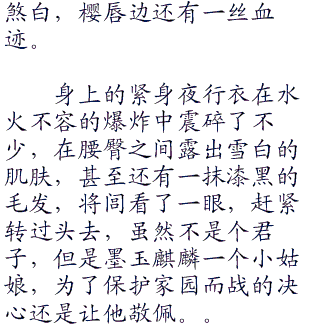 煞白，樱唇边还有一丝血
迹。
身上的紧身夜行衣在水
火不容的爆炸中震碎了不
少，在腰臀之间露出雪白的
肌肤，甚至还有一抹漆黑的
毛发，将闾看了一眼，赶紧
转过头去，虽然不是个君
子，但是墨玉麒麟一个小姑
娘，为了保护家园而战的决
心还是让他敬佩。。